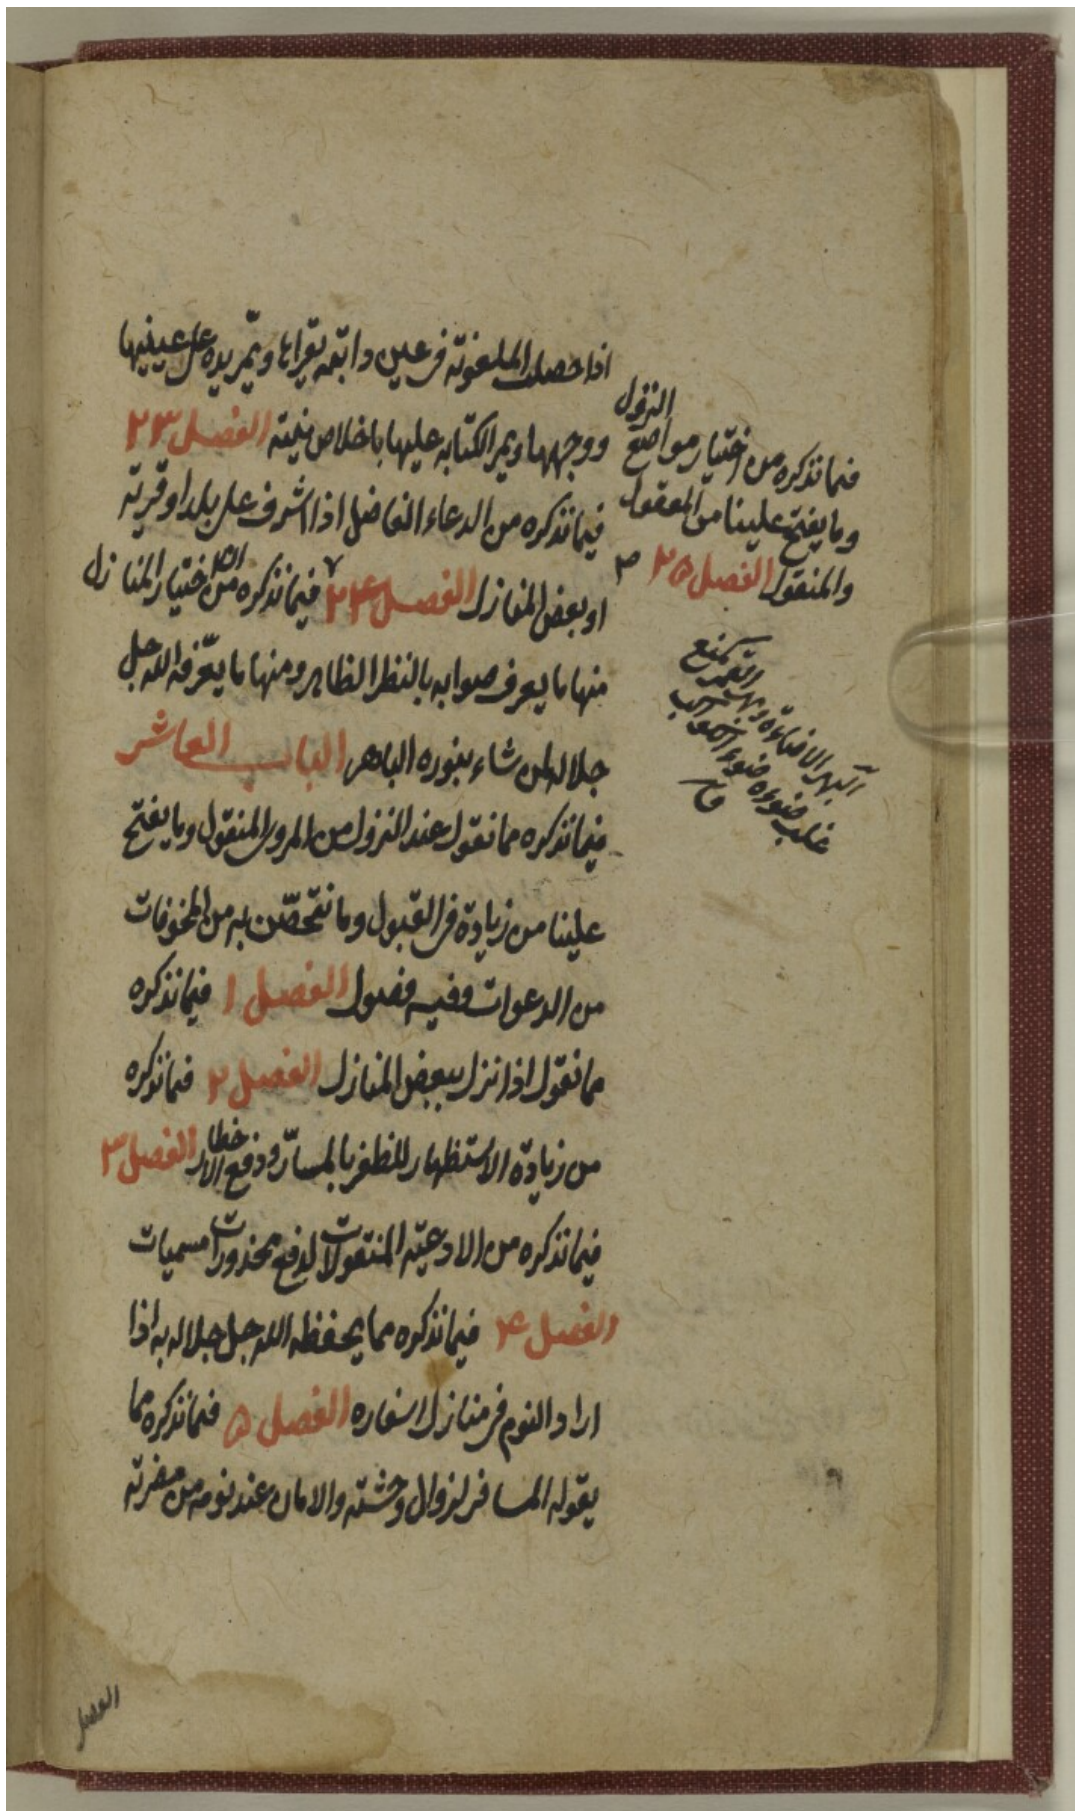 اذا حصلت الملعونة فى عين دابته يقراها و يمّر يده على عينيها
و وجهها و يمر الكتابه عليها باخلاص نيته الفصل ٢٣
فيما نذكره من الدعاء الفاضل اذا اشرف على بلد او قرية
او بعض المنازل الفصل ٢٤ فيما نذكره من اختيار المنازل
منها ما يعرف صوابه بالنظر الظاهر ومنها ما يعرّفه الله جل
جلاله لمن شاء بنوره الباهر الباب العاشر
فيما نذكره مما نقول عند النزول من المروى المنقول وما يفتح
علينا من زيادة فى القبول وما نتحصّن به من المخوفات
من الدعوات وفيه فصول الفصل ١ فيما نذكره
مما نقول اذا نزل ببعض المنازل الفصل ٢ فيما نذكره
من زيادة الاستظهار للظفر بالمسارّ ودفع الاخطار الفصل ٣
فيما نذكره من الادعية المنقولات لدفع محذورات مسميات
الفصل ٤ فيما نذكره مما يحفظه الله جل جلاله به اذا
اراد النوم فى منازل اسفاره الفصل ٥ فيما نذكره مما
يقوله المسافر لزوال وحشته والامان عند نومه من مضرته
فيما نذكره من اختيار مواضع النزول
وما يفتح علينا من المعقول
والمنقول الفصل ٢٥
البهر الاضاءة وبهر القمر كمنع
غلب ضوءه ضوء الكواكب
ق
الفصل